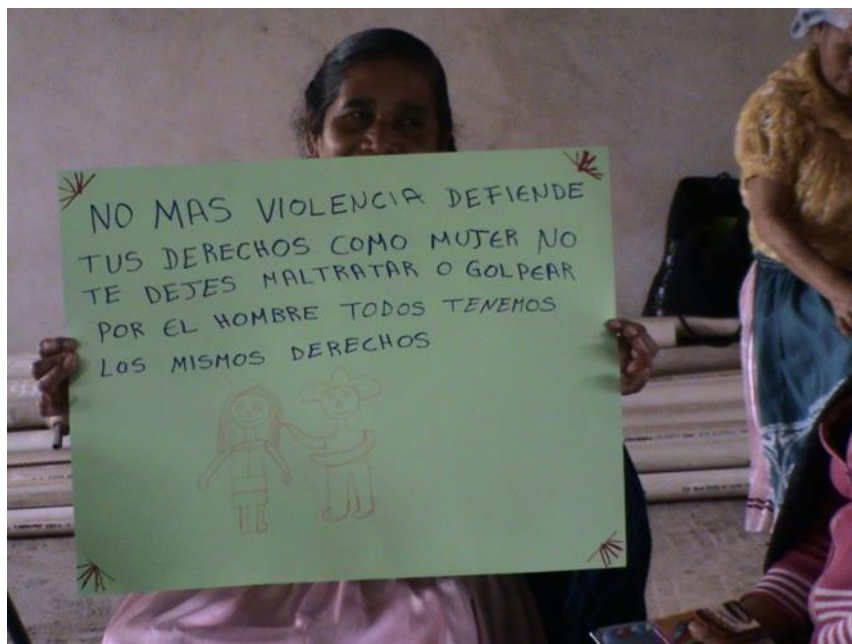 NO MAS VIOLENCIA DEFIENDE
TUS DERECHOS COMO MUJER NO
TE DEJES MALTRATAR O GOLPEAR
POR EL HOMBRE TODOS TENEMOS
LOS MISMOS DERECHOS